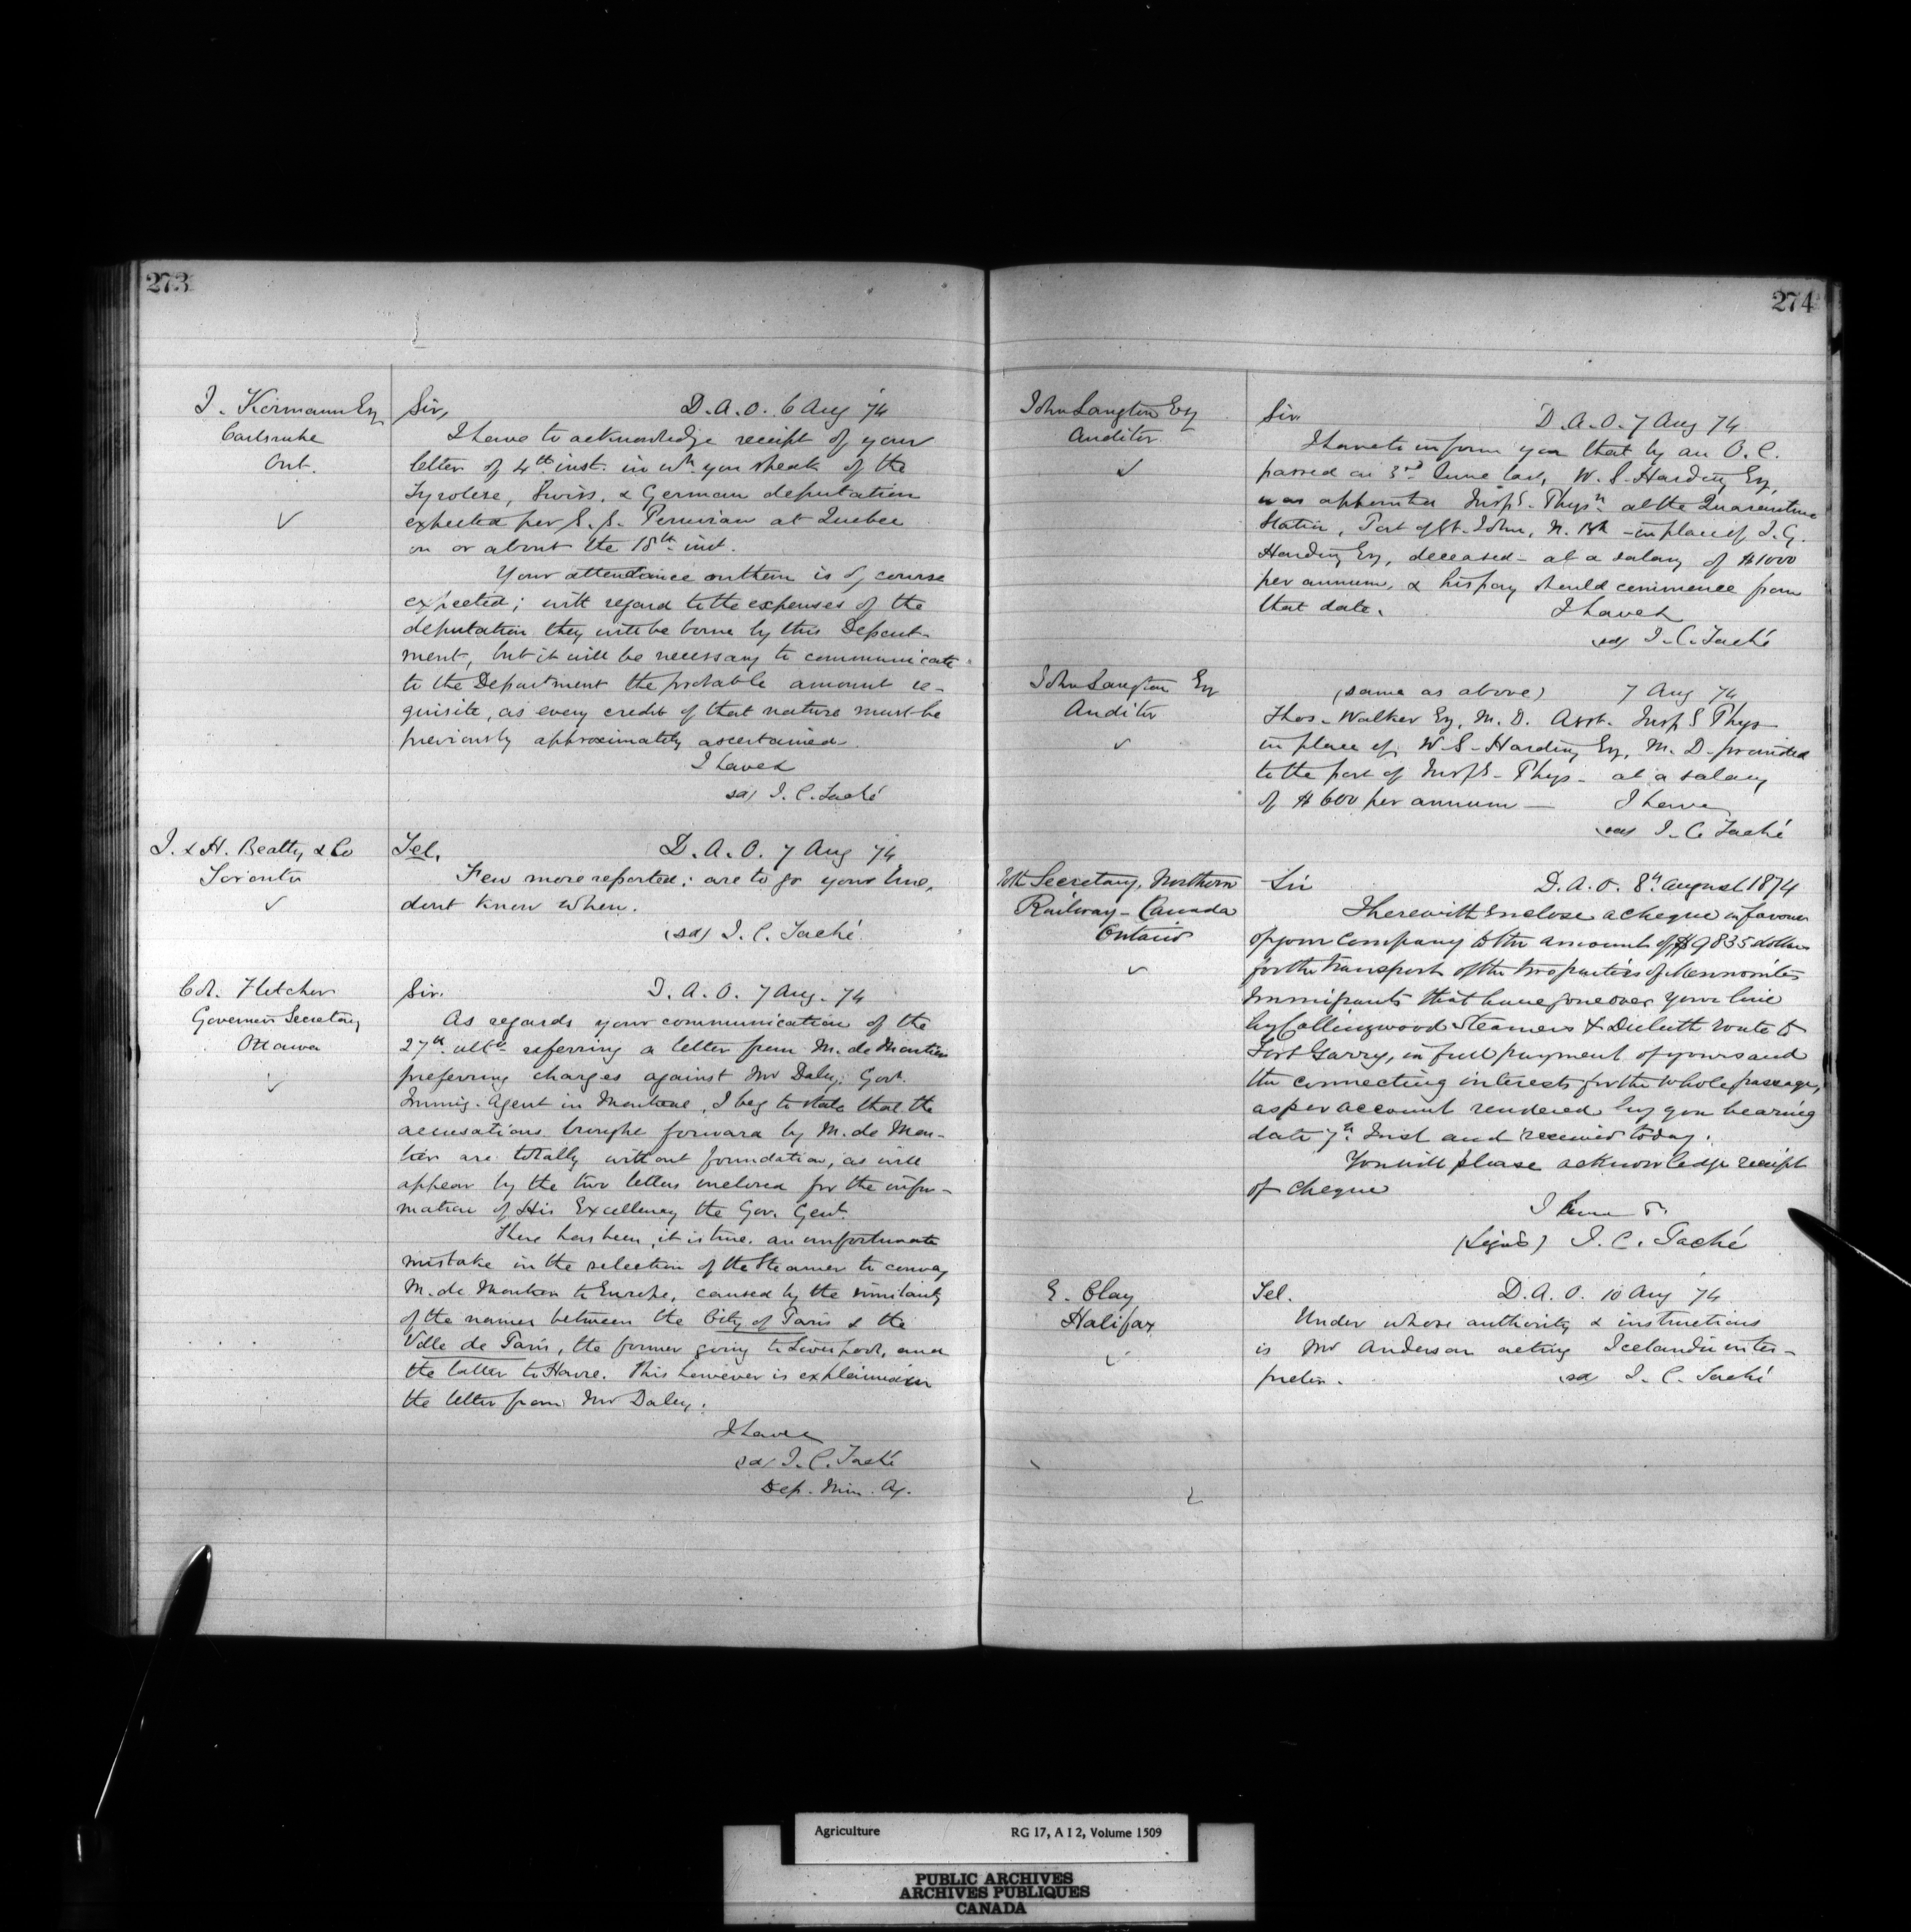 273
J. Kormann Esq
Carlsruhe
Ont.
Sir, D.A.O. 6 Aug 74
I have to acknowledge receipt of your
letter of 4th inst. in wh. you speak of the
Tyrolese, Swiss, & German deputation
expected per S.S. Peruvian at Quebec
on or about the 18th inst.
Your attendance on them is of course
expected; with regard to the expenses of the
deputation they will be borne by this Depart-
ment, but it will be necessary to communicate
to the Department the probable amount re-
quisite, as every credit of that nature must be
previously approximately ascertained.
I have &
sd/ J. C. Taché
J. & H. Beatty & Co
Toronto
Tel. D.A.O. 7 Aug 74
Few more reported; are to go your line,
dont know when.
(sd) J. C. Taché
Col. Fletcher
Governors Secretary
Ottawa
Sir. D.A.O. 7 Aug. 74
As regards your communication of the
27th ulto referring a letter from M. de
preferring charges against Mr Daley, Govt.
Immig. Agent in Montreal, I beg to state that the
accusations brought forward by M. de
are totally without foundation, as will
appear by the two letters inclosed for the infor-
mation of His Excellency the Gov. Genl.
There has been, it is true, an unfortunate
mistake in the selection of the Steamer to convey
M. de to Europe, caused by the similarity
of the names between the City of Paris & the
Ville de Paris, the former going to Liverpool, and
the latter to Havre. This however is explained in
the letter from Mr Daley.
I have
sd/ J. C. Taché
Dep. Min. Ag.
274
John Langton Esq
Auditor
Sir D.A.O. 7 Aug 74
I have to inform you that by an O.C.
passed on 3rd June last, W. S. Harding Esq,
was appointed Insp'g Physn at the Quarantine
Station, Port of St. John, N. Bk - in place of J. G.
Harding Esq, deceased - at a salary of $1000
per annum, & his pay should commence from
that date. I have &
sd/ J. C. Taché
John Langton Esq
Auditor
(same as above) 7 Aug 74
Thos. Walker Esq, M.D. Asst. Insp'g Phys
in place of W. S. Harding Esq, M.D. promoted
to the post of Insp'g Phys - at a salary
of $600 per annum — I have
sd/ J. C. Taché
The Secretary, Northern
Railway - Canada
Ontario
Sir D.A.O. 8th August 1874
I herewith enclose a cheque in favour
of your Company to the amount of $9835 dollars
for the transport of the two parties of Mennonites
Immigrants that have gone over your line
by Collingwood Steamers & Duluth route to
Fort Garry, in full payment of yours and
the connecting interests for the whole passage,
as per account rendered by you bearing
date 7th Inst and received today.
You will please acknowledge receipt
of cheque
I have &.
(Signed) J. C. Taché
E. Clay
Halifax
Tel. D.A.O. 10 Aug 74
Under whose authority & instructions
is Mr Anderson acting Icelandic inter-
preter. sd/ J. C. Taché
Agriculture RG 17, A I 2, Volume 1509
PUBLIC ARCHIVES
ARCHIVES PUBLIQUES
CANADA